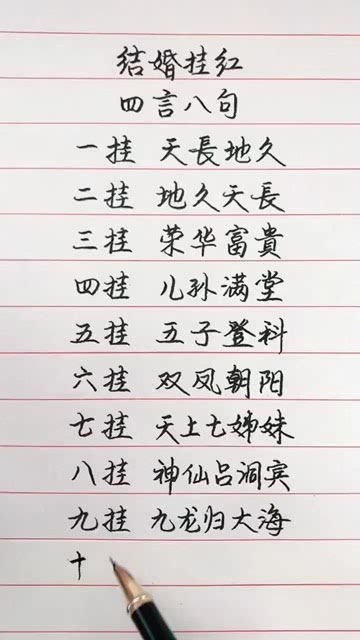 结婚挂红
四言八句
一挂 天長地久
二挂 地久天長
三挂 荣华富貴
四挂 儿孙满堂
五挂 五子登科
六挂 双凤朝阳
七挂 天上七姊妹
八挂 神仙吕洞宾
九挂 九龙归大海
十